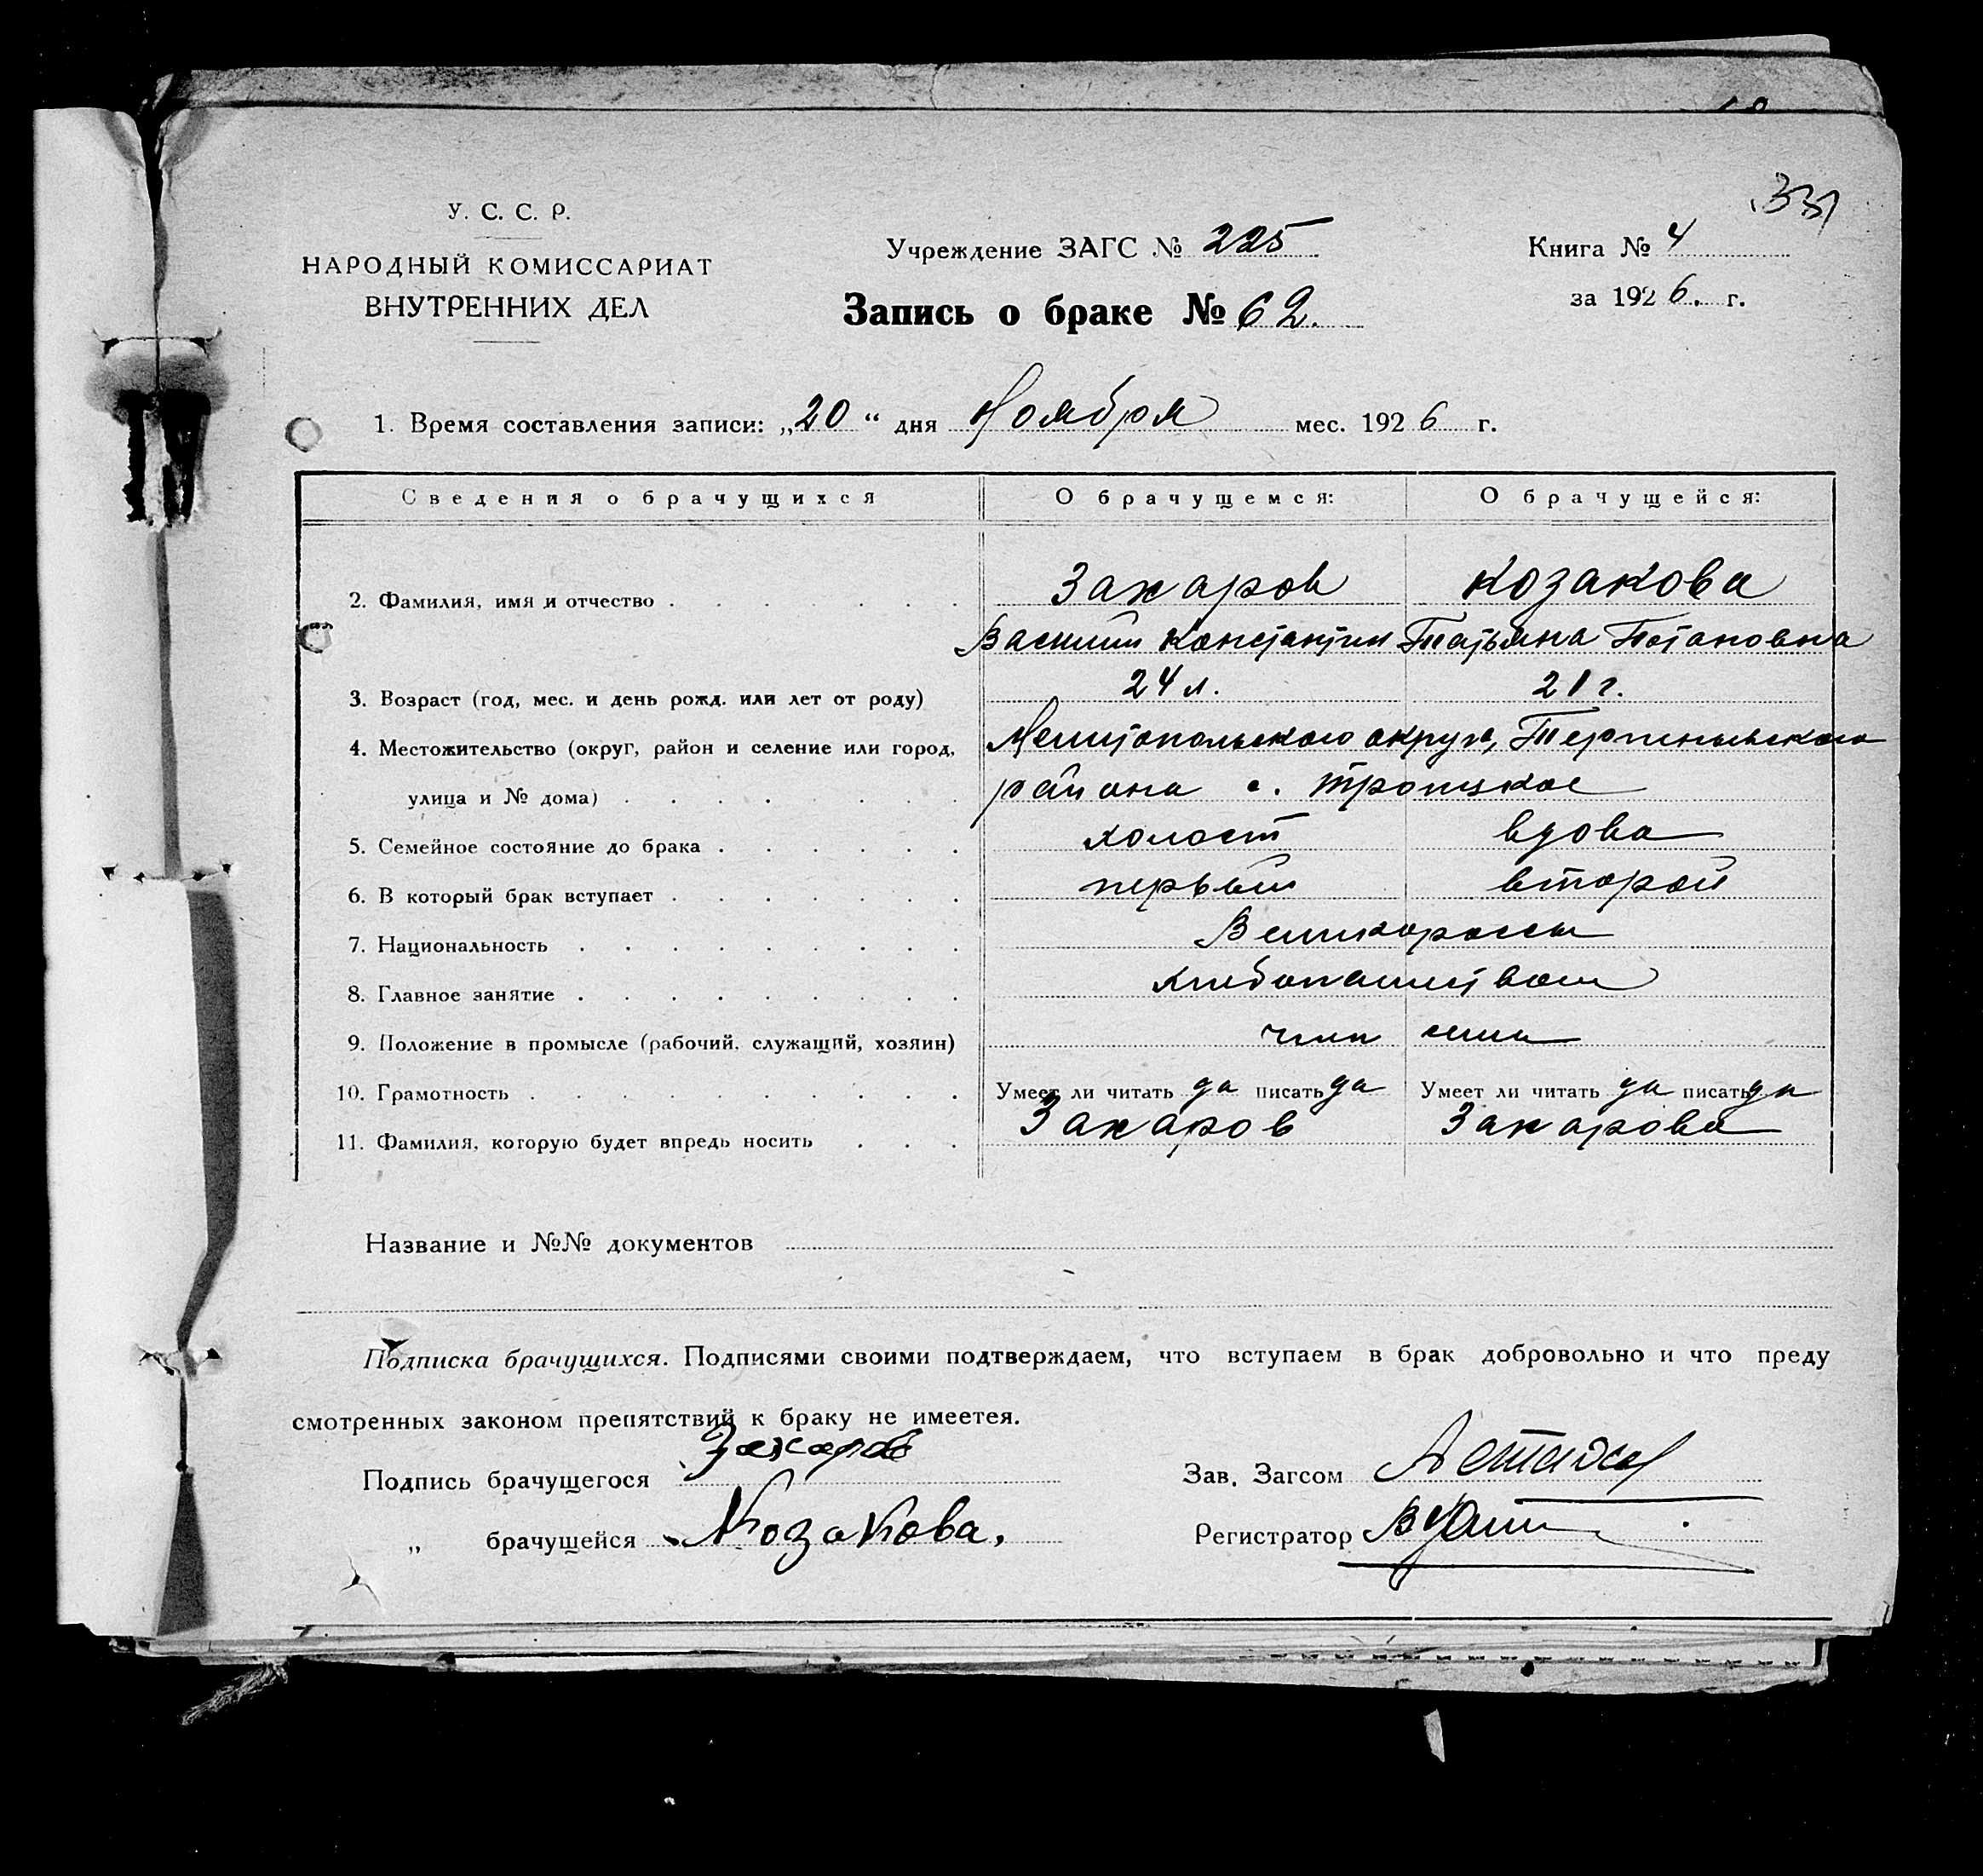 331
У. С. С. Р.
НАРОДНЫЙ КОМИССАРИАТ
ВНУТРЕННИХ ДЕЛ
Учреждение ЗАГС № 225
Книга № 4
за 1926. г.
Запись о браке № 62.
1. Время составления записи: „20“ дня Ноября мес. 1926 г.
Сведения о брачущихся О брачущемся: О брачущейся:
2. Фамилия, имя и отчество Захаров Козакова
Василий Константин Татьяна Потаповна
3. Возраст (год, мес. и день рожд. или лет от роду) 24 л. 21 г.
4. Местожительство (округ, район и селение или город, Мелитопольского округа, Терпеньевского
улица и № дома) района с. Троицкое
5. Семейное состояние до брака холост вдова
6. В который брак вступает первый второй
7. Национальность Великороссы
8. Главное занятие хлебопашеством
9. Положение в промысле (рабочий, служащий, хозяин) член семьи
10. Грамотность Умеет ли читать да писать да Умеет ли читать да писать да
11. Фамилия, которую будет впредь носить Захаров Захарова
Название и №№ документов
Подписка брачущихся. Подписями своими подтверждаем, что вступаем в брак добровольно и что преду
смотренных законом препятствий к браку не имеется.
Подпись брачущегося Захаров
Зав. Загсом
„ брачущейся Козакова.
Регистратор